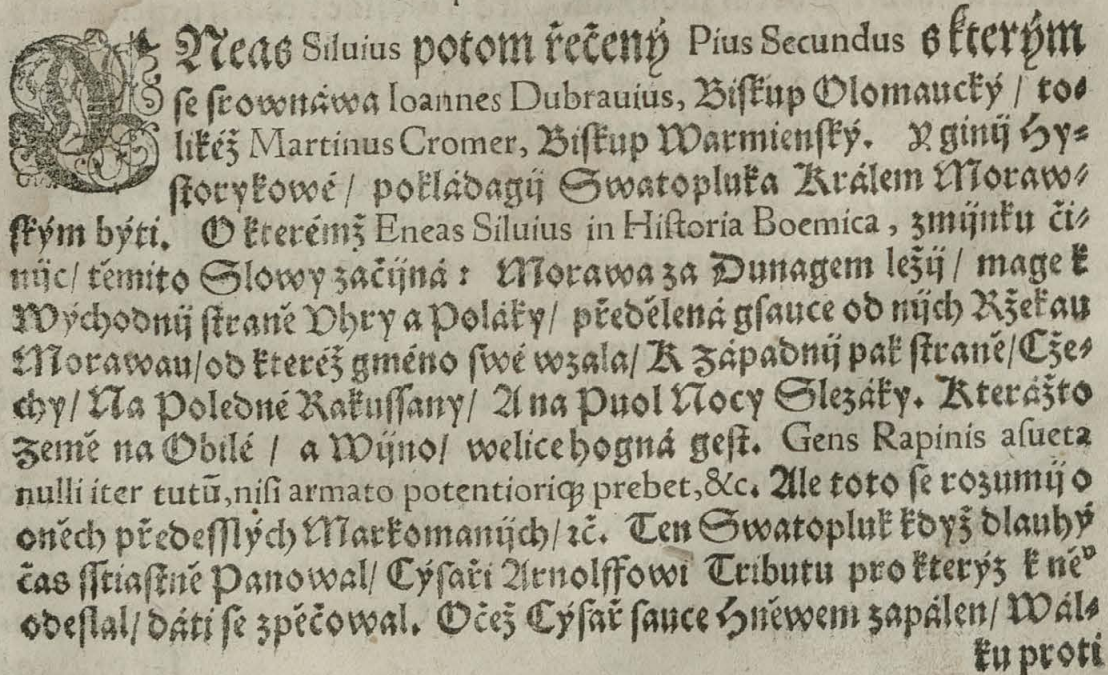 ENeas Siluius potom řečený Pius Secundus s kterým
se srownáwa Ioannes Dubrauius, Biſkup Olomaucký / to⸗
likéž Martinus Cromer, Biſkup Warmienſký. Y ginij Hy⸗
ſtorykowé / pokládagij Swatopluka Králem Moraw⸗
ſkým býti. O kterémž Eneas Siluius in Hiſtoria Boemica, zmijnku či⸗
nijc / těmito Slowy začijná: Morawa za Dunagem ležij / mage k
Wýchodnij ſtraně Vhry a Poláky / předělená gſauce od nijch Ržekau
Morawau / od kteréž gméno ſwé wzala / K západnij pak ſtraně / Cže⸗
chy / Na Poledné Rakuſſany / A na Puol Nocy Slezáky. Kterážto
země na Obilé / a Wijno / welice hogná geſt. Gens Rapinis aſueta
nulli iter tutū, niſi armato potentioriqꝫ prebet, &c. Ale toto ſe rozumij o
oněch předeſſlých Markomanijch / ꝛč. Ten Swatopluk když dlauhý
čas ſſtiaſtně Panowal / Cýſaři Arnolffowi Tributu pro kterýz k něᵒ
odeſlal / dáti ſe zpěčowal. Očež Cýſař ſauce Hněwem zapálen / Wál⸗
ku proti